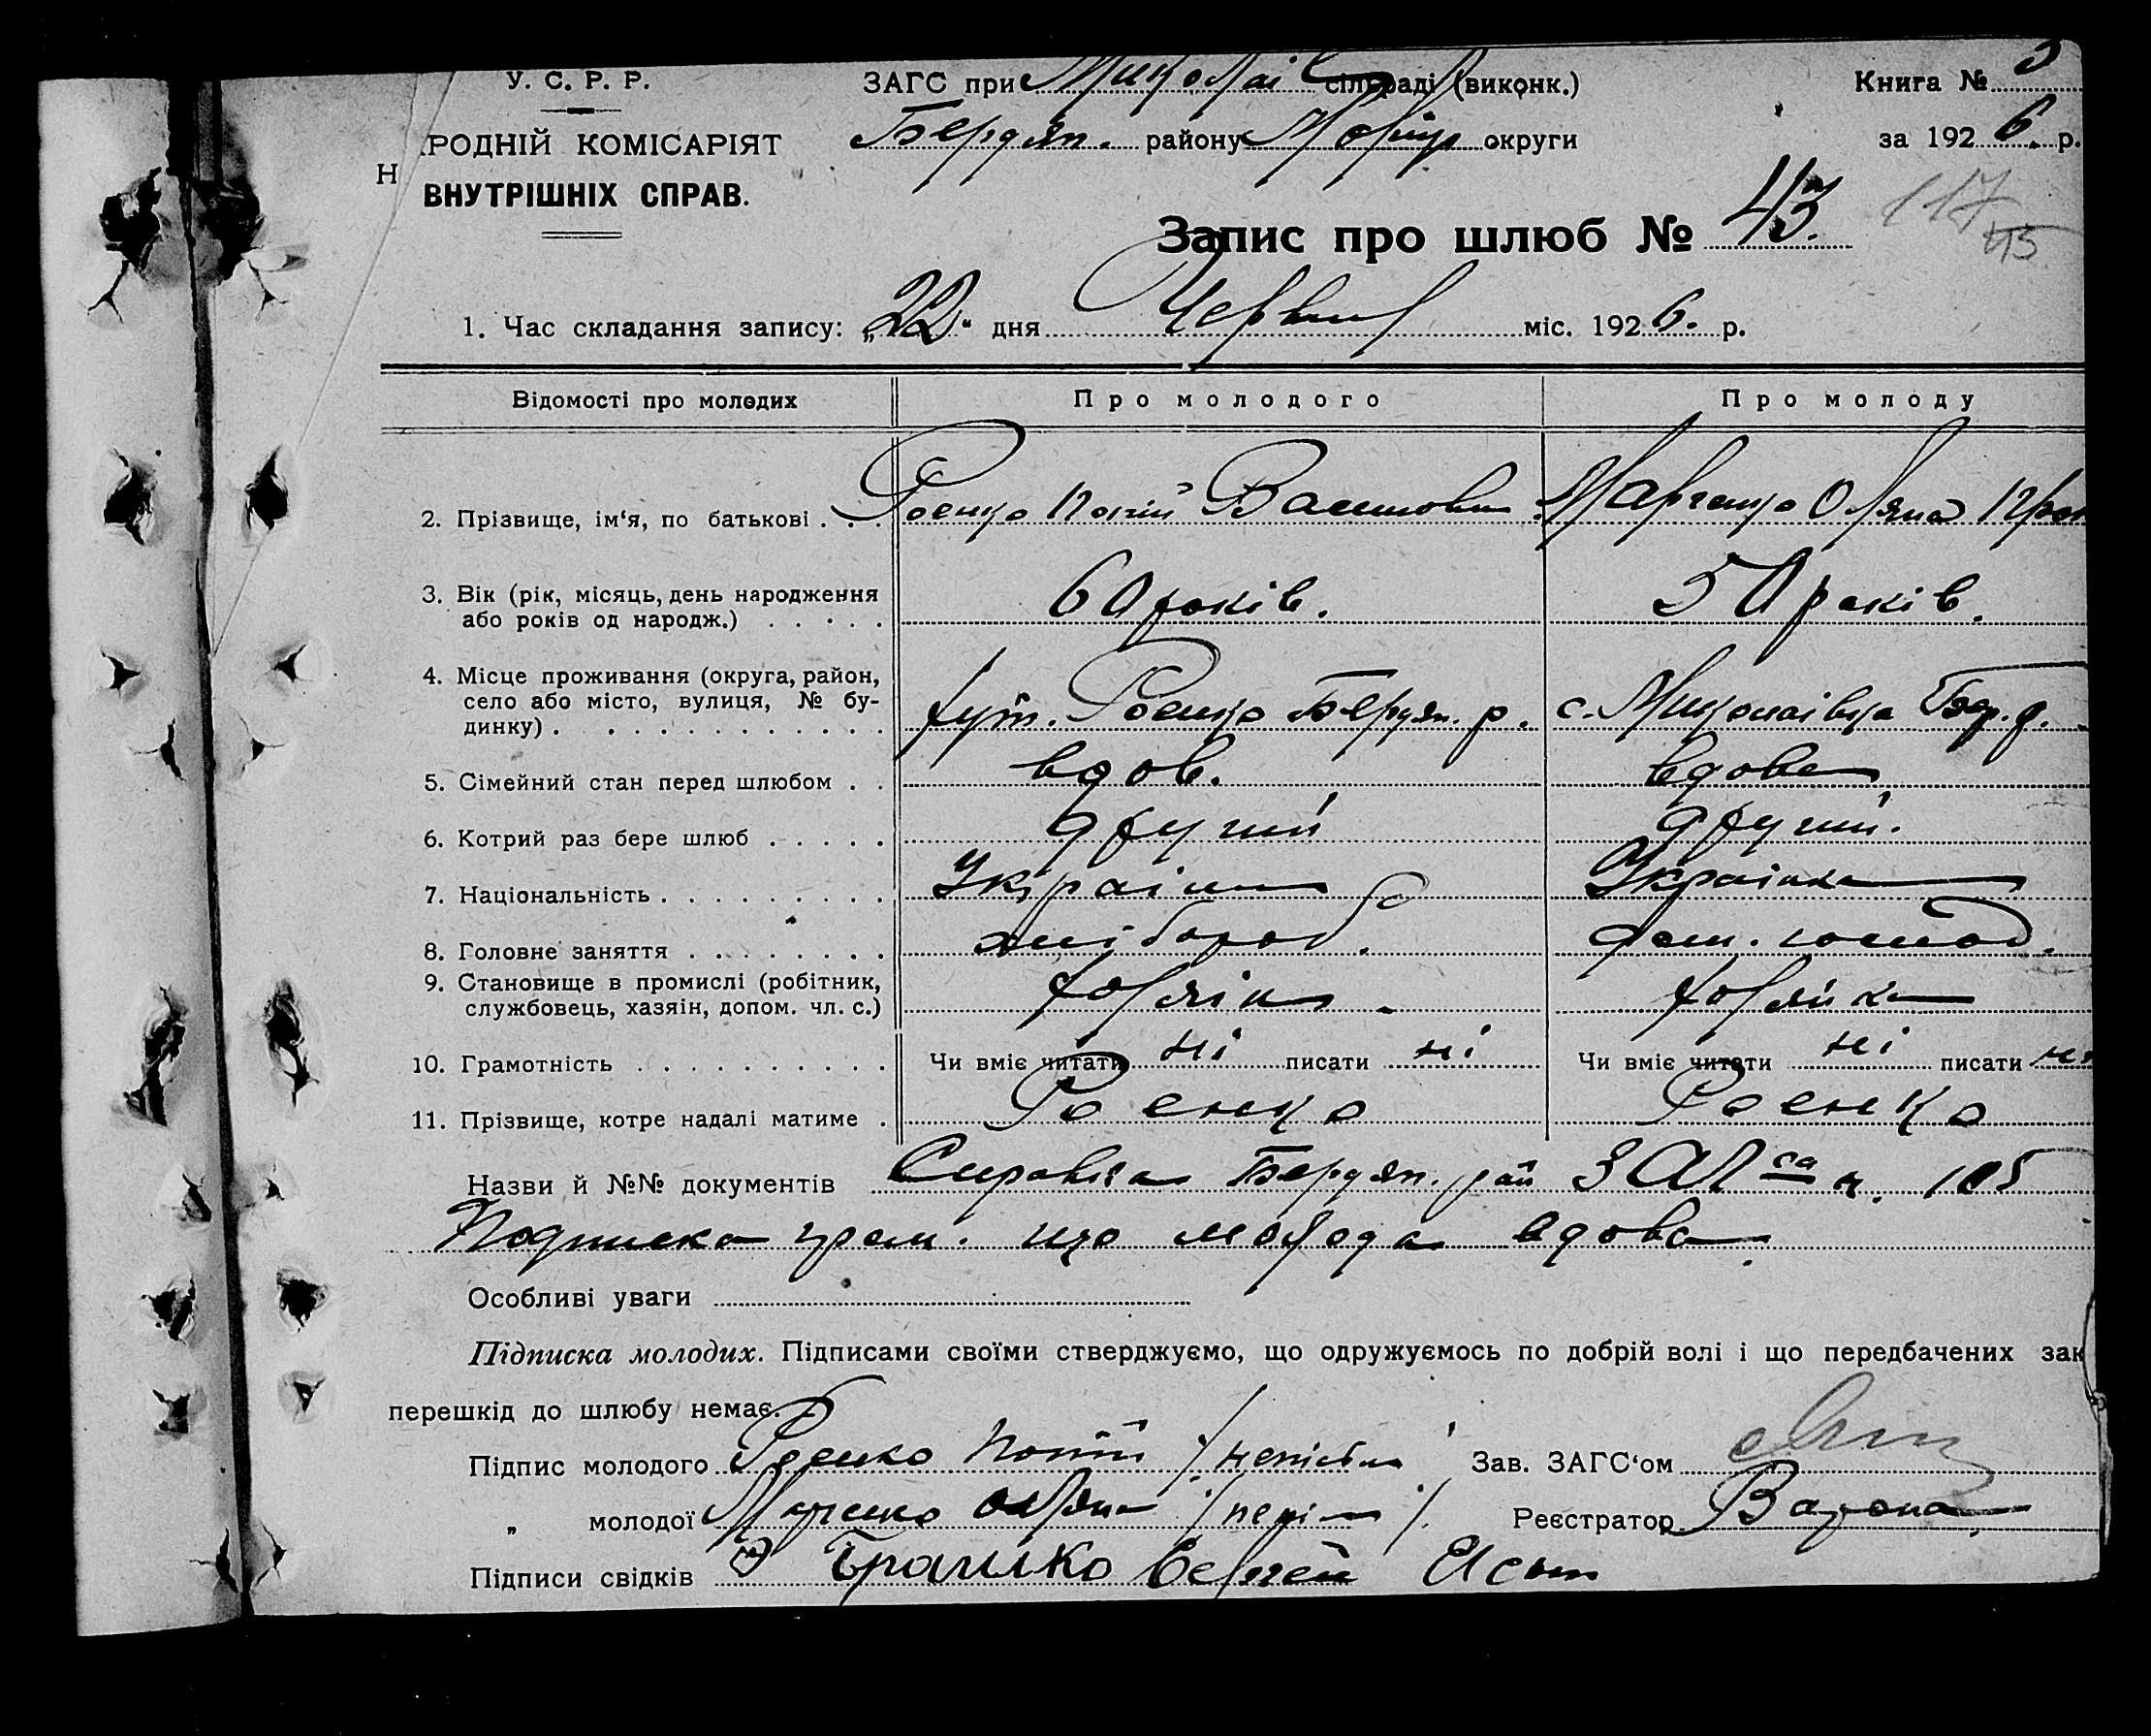 У. С. Р. Р.
НАРОДНІЙ КОМІСАРІЯТ
ВНУТРІШНІХ СПРАВ.
ЗАГС при Миколаїв сілораді (виконк.)
Бердян. району Маріюп округи
Книга № 3
за 1926 р.
Запис про шлюб № 43.
117
45
1. Час складання запису: „22“ дня Червня міс. 1926. р.
Відомості про молодих Про молодого Про молоду
2. Прізвище, ім‘я, по батькові . . . Роенко Потій Василович Марченко Оляна
3. Вік (рік, місяць, день народження
або років од народж.) . . . . . 60 років. 50 років.
4. Місце проживання (округа, район,
село або місто, вулиця, № бу-
динку) . . . . . . . . . . . . хут. Роенко Бердян. р. с. Миколаівка Бер. р.
5. Сімейний стан перед шлюбом . . вдов. вдова
6. Котрий раз бере шлюб . . . . . другий другий.
7. Національність . . . . . . . . . Украінець Украінка
8. Головне заняття . . . . . . . . хлібороб. дом. господ.
9. Становище в промислі (робітник,
службовець, хазяін, допом. чл. с.) хазяін хазяйка
10. Грамотність . . . . . . . . . . Чи вміє читати ні писати ні Чи вміє читати ні писати ні
11. Прізвище, котре надалі матиме . Роенко Роенко
Назви й №№ документів Справка Бердян. рай ЗАГса н. 105
Подписка гром. що молода вдова.
Особливі уваги
Підписка молодих. Підписами своїми стверджуємо, що одружуємось по добрій волі і що передбачених зак
перешкід до шлюбу немає.
Підпис молодого Роенко Потій /непісьм/ Зав. ЗАГС‘ом
„ молодої Марченко Оляна /непісм/. Реєстратор
Підписи свідків Сергей